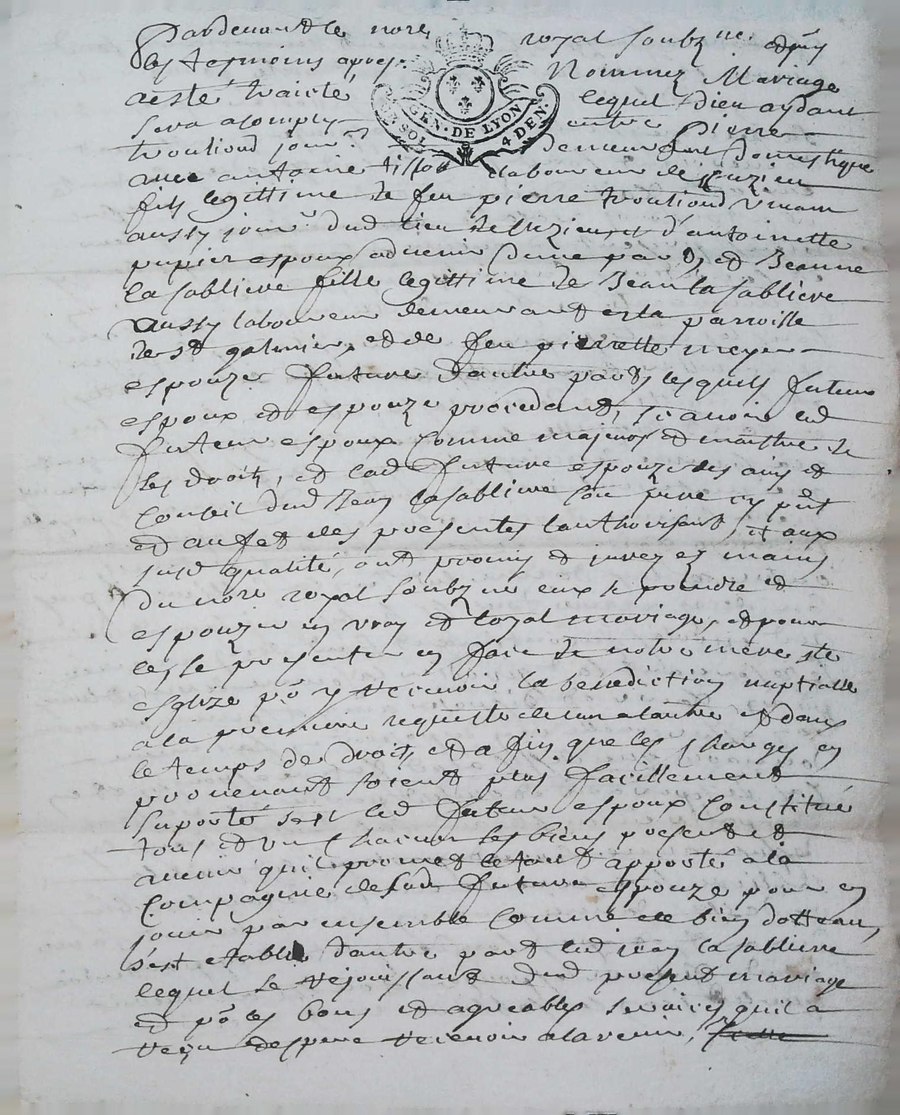 Pardevant le nore royal soubzne et
les tesmoins apres nommez Mariage
a esté traicté lequel Dieu aydant
sera acomply entre Pierre
GEN. DE LYON
SOL 4 DEN.
troulioud jour demeurant domestique
avec antoine tissot laboureur de
fils legittime de feu pierre troulioud vivant
aussy jour dud lieu de et d'antoinette
pupier espoux advenir d'une part, et Jeanne
lasabliere fille legittime de Jean lasabliere
aussy laboureur demeurant en la parroisse
de st galmier, et de feu pierrette meyer
espouze future d'autre part, lesquels futurs
espoux et espouze procedant, scavoir led
futeur espoux comme majeur et maistre de
ses droits, et lad future espouze des avis et
conseil dud Jean lasabliere son pere cy pnt
et au fet des presentes l'authorisant, et aux
susd qualité, ont promis et jurez ez mains
du nore royal soubzne eux se prendre et
espouzer en vray et loyal mariage, et pour
ce se presenter en face de nostre mere ste
esglize po y recevoir la benediction nuptialle
a la premiere requeste de l'un a l'autre et dans
le temps de droit, et a fin que les charges en
provenant soient plus facillement
suporté s'est led futeur espoux constitué
tous et un chacun ses biens present et
avenir qu'il promet le tout apporté a la
compagnie de sad future espouze pour en
jouir par ensemble comme de bien dotteaux,
s'est etablie d'autre part led jean lasabliere
lequel se rejouissant dud present mariage
et po les bons et agreables services qu'il a
reçu et espere recevoir a l'avenir,